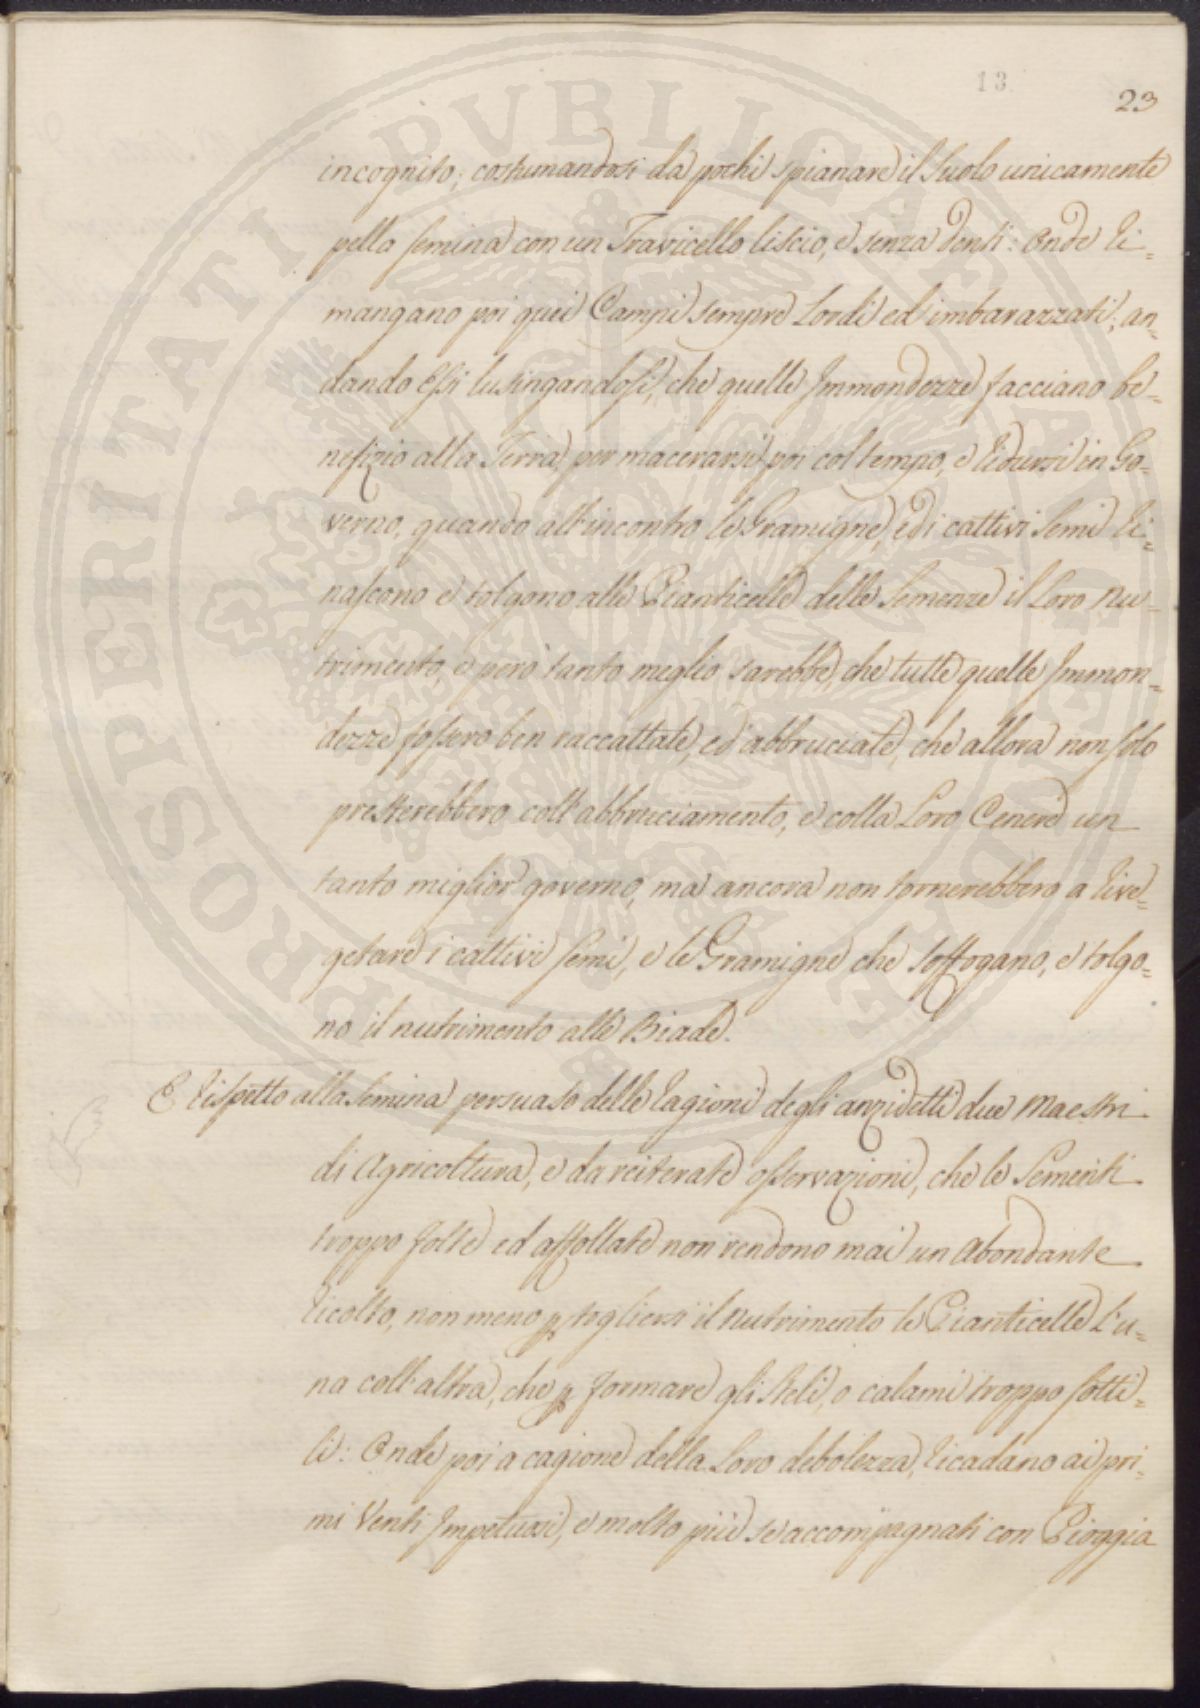 13
23
incognito; costumandosi da pochi spianare il Suolo unicamente
pella semina con un Travicello liscio, e senza denti: onde ri=
mangano poi quei Campi sempre Lordi ed imbarazzati; an=
dando Essi lusingandosi, che quelle Immondezze facciano be=
nefizio alla Terra, per macerarsi poi col tempo, e ridursi in Go=
verno, quando all'incontro le Gramigne, ed i cattivi Semi ri=
nascono e tolgono alle Pianticelle delle Semenze il Loro nu=
trimento, e però tanto meglio sarebbe, che tutte quelle Immon=
dezze fossero ben raccattate, ed abbruciate, che allora non solo
presterebbero coll'abbruciamento, e colla Loro Cenere un
tanto miglior governo, ma ancora non tornerebbero a rive=
getare i cattivi semi, e le Gramigne che soffogano, e tolgo=
no il nutrimento alle Biade.
E rispetto alla Semina persuaso delle ragioni degli anzidetti due Maestri
di Agricoltura, e da reiterate osservazioni, che le Sementi
troppo folte ed affollate non rendono mai un Abondante
ricolto, non meno p togliersi il nutrimento le Pianticelle l'u=
na coll'altra, che p formare gli steli, o calami troppo sotti=
li: Onde poi a cagione della Loro debolezza, ricadano ai pri=
mi Venti Impetuosi, e molto più se accompagnati con Pioggia
PROSPERITATI PVBLICAE AVGENDAE